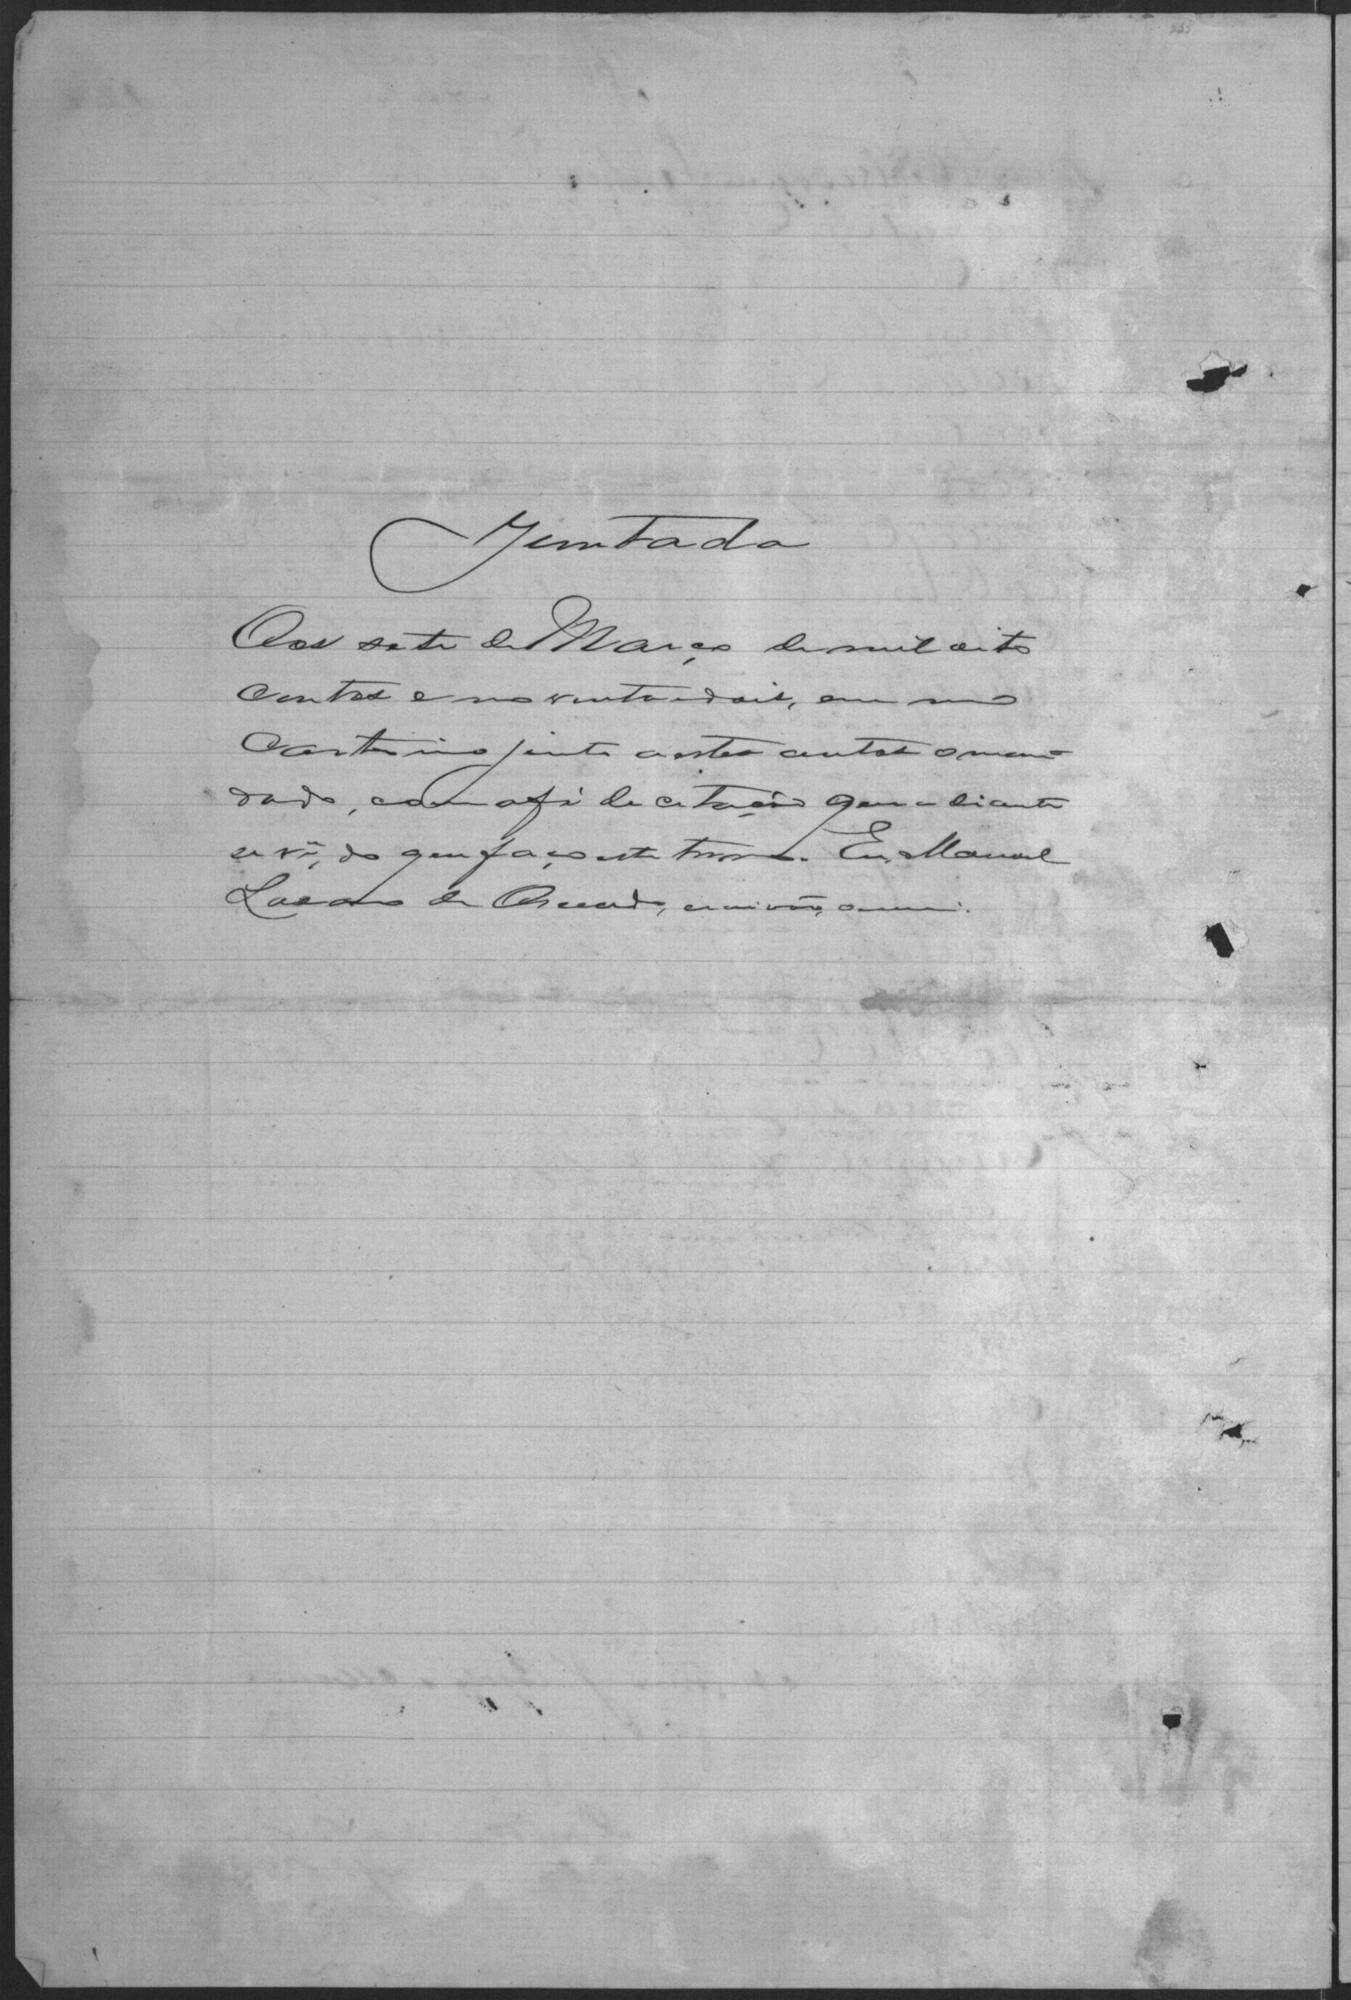 Juntada
Aos sete de Março de mil oito
centos e noventa e dois, em meo
Cartorio junto a estes autos o man
dado, com a fé de citação que adiante
se vê, do que faço este termo. Eu, Manoel
Lazaro de Azevedo, escrivão, escrevi.